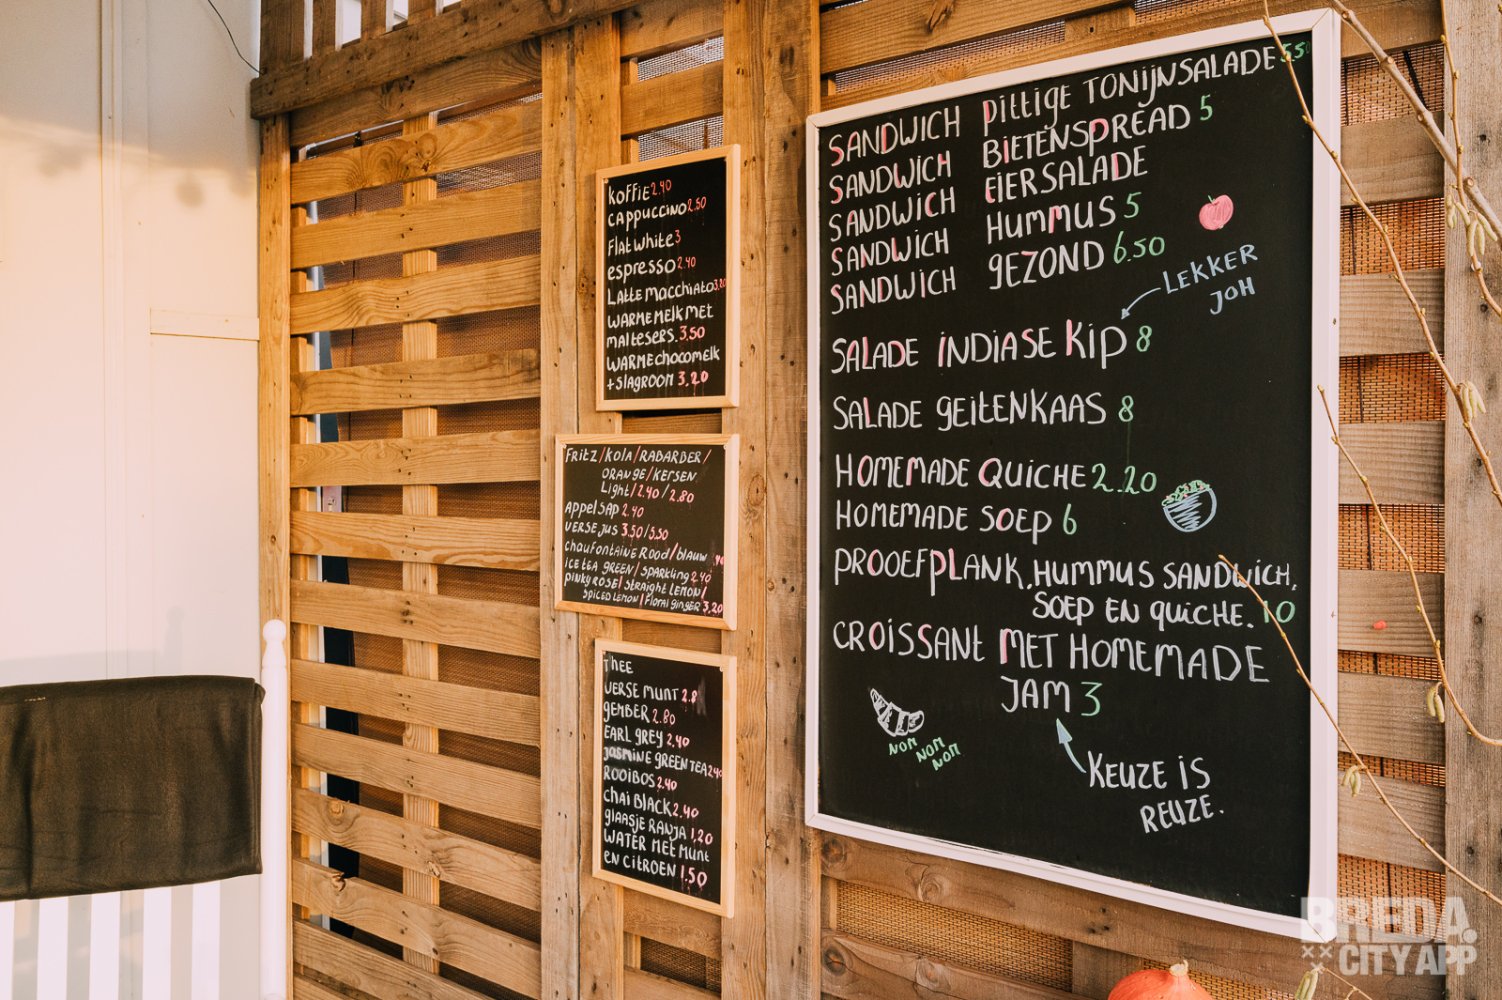 KOFFIE 2.40
CAPPUCCINO 2.50
FLAT WHITE 3
ESPRESSO 2.40
LATTE MACCHIATO 3.20
WARME MELK MET
MALTESERS. 3.50
WARME CHOCOMELK
+ SLAGROOM 3,20
FRITZ/KOLA/RABARBER/
ORANGE/KERSEN
LIGHT/2.40/2.80
APPELSAP 2.40
VERSE JUS 3.50/5.50
CHAUFONTAINE ROOD/BLAUW
ICE TEA GREEN/SPARKLING 2.40
PINKY ROSE/STRAIGHT LEMON/
SPICED LEMON/FLORAL GINGER 3,20
THEE
VERSE MUNT 2.8
GEMBER 2.80
EARL GREY 2,40
JASMINE GREEN TEA 2.40
ROOIBOS 2.40
CHAI BLACK 2.40
GLAASJE RANJA 1,20
WATER MET MUNT
EN CITROEN 1.50
SANDWICH PITTIGE TONIJNSALADE 5.50
SANDWICH BIETENSPREAD 5
SANDWICH EIERSALADE
SANDWICH HUMMUS 5
SANDWICH GEZOND 6.50
LEKKER
JOH
SALADE INDIASE KIP 8
SALADE GEITENKAAS 8
HOMEMADE QUICHE 2.20
HOMEMADE SOEP 6
PROOEFPLANK. HUMMUS SANDWICH,
SOEP EN QUICHE. 10
CROISSANT MET HOMEMADE
JAM 3
NOM NOM NOM
KEUZE IS
REUZE.
BREDA.
CITY APP